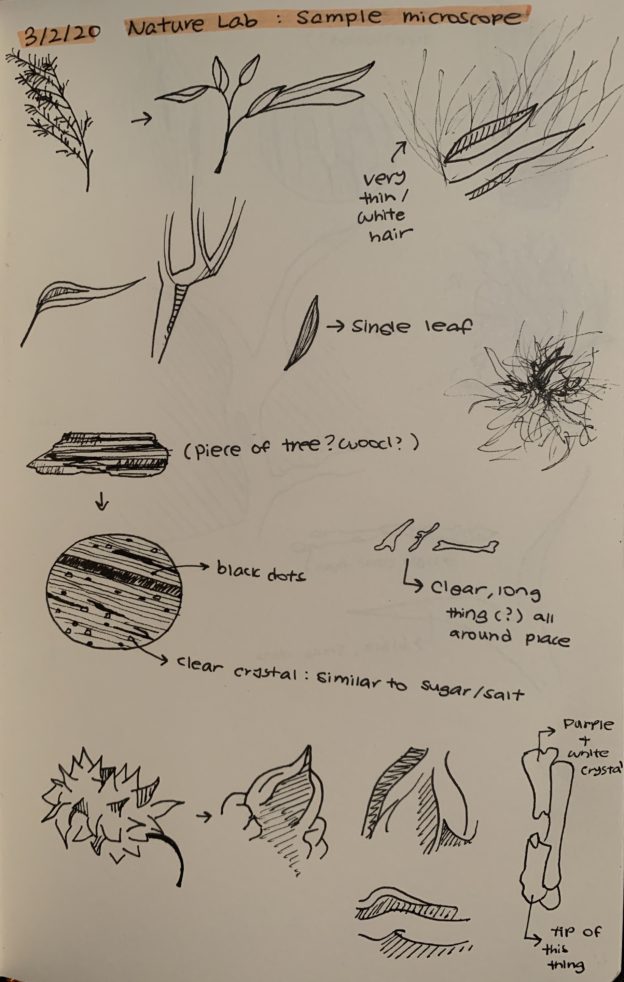 3/2/20 Nature Lab : Sample microscope
very
thin/
white
hair
Single leaf
(Piece of tree? Wood?)
black dots
Clear, long
thing (?) all
around place
Clear crystal : Similar to sugar/salt
Purple
+
white
crystal
tip of
this
thing